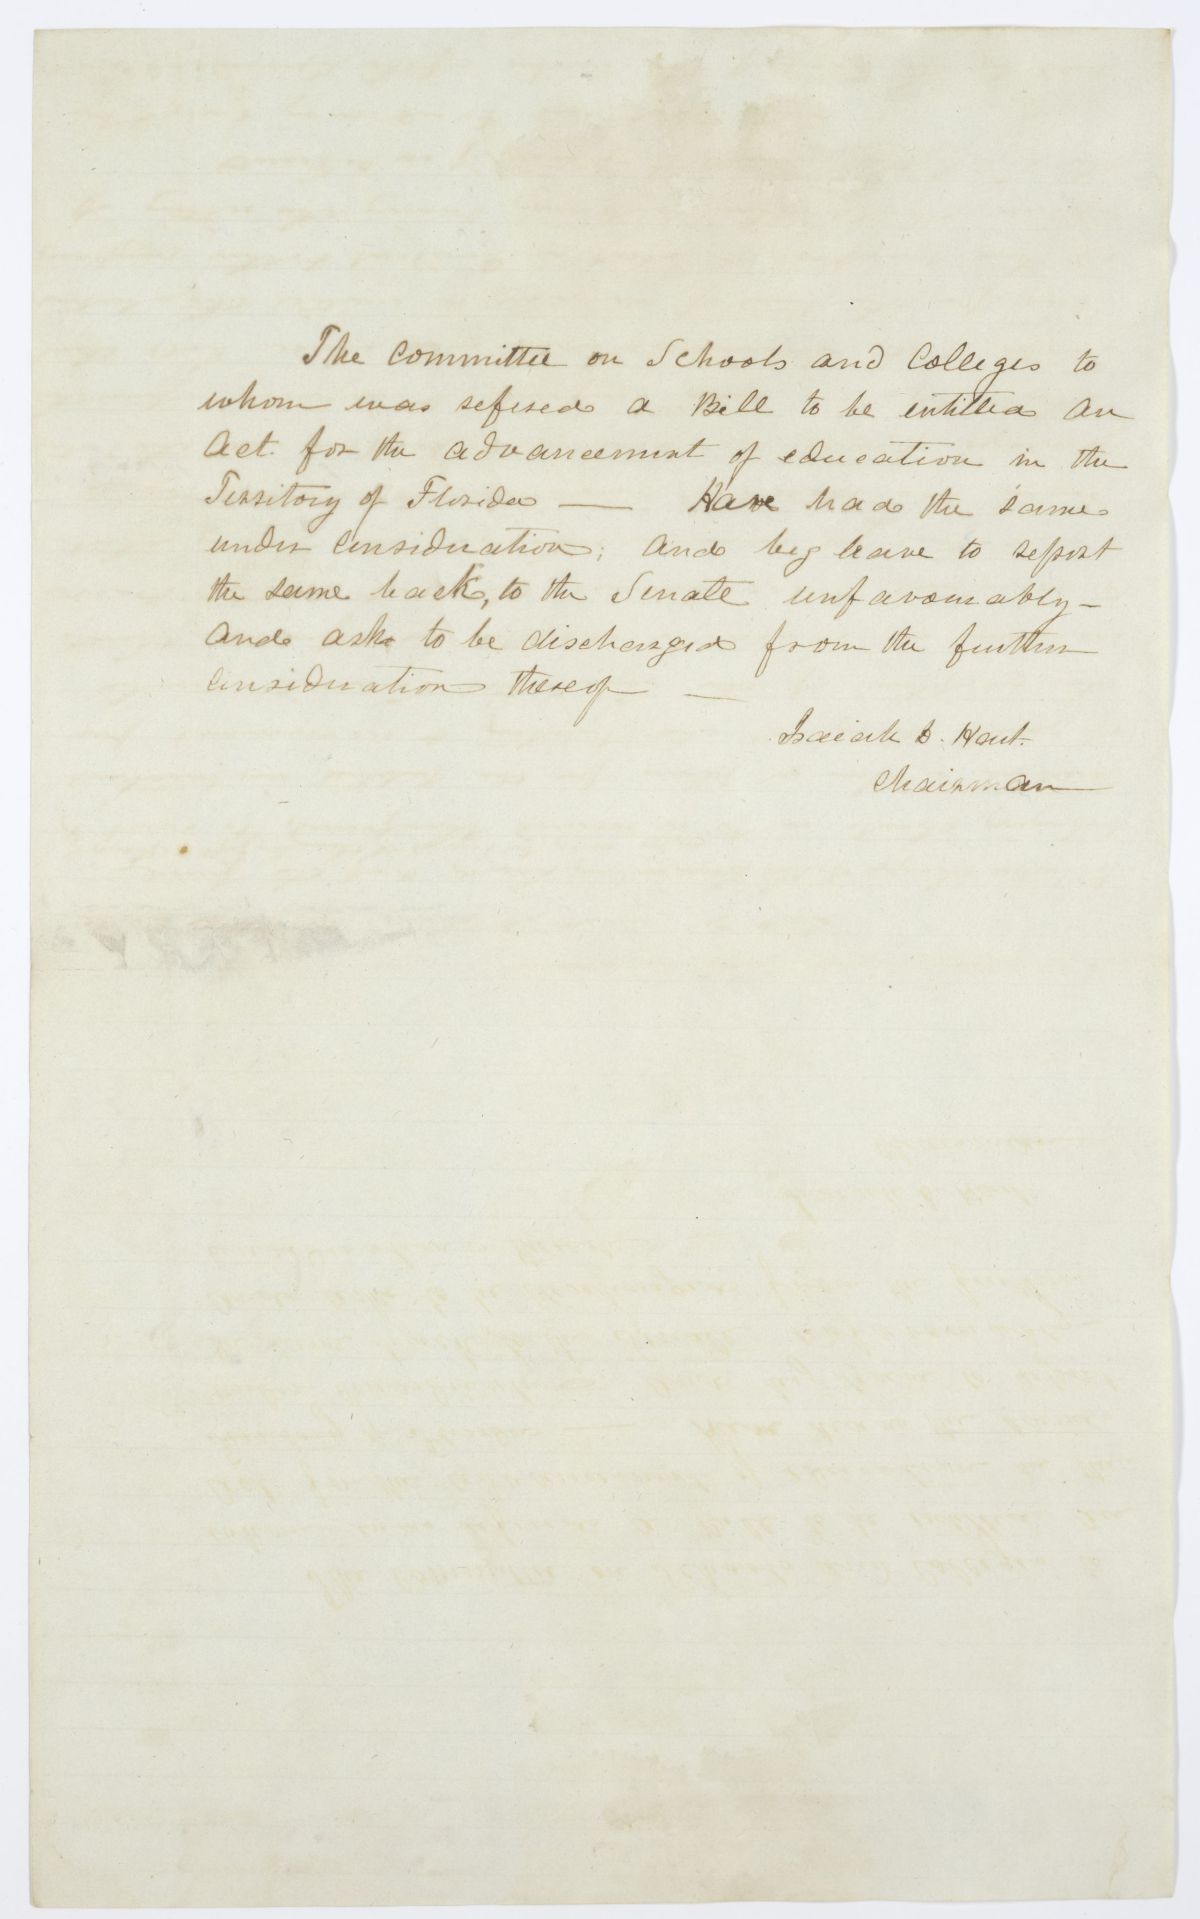 The Committee on Schools and Colleges to
whom was refered a Bill to be entitled An
Act. for the advancement of education in the
Territory of Florida — Have had the same
under Consideration; And beg leave to report
the same back, to the Senate unfavourably —
And ask to be discharged from the further
Consideration thereof —
Isaiah D. Hart.
Chairman